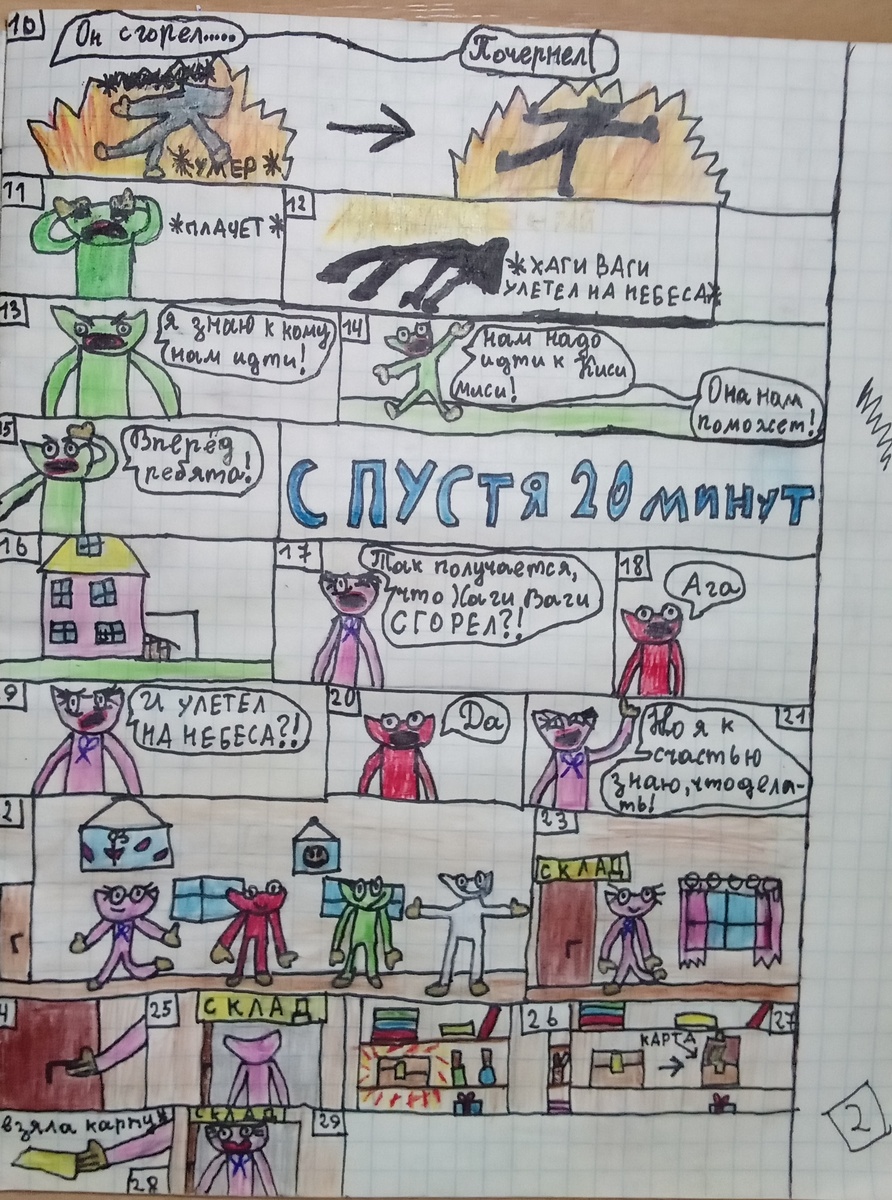 10
Он сгорел.....
Почернел
*УМЕР*
11
*ПЛАЧЕТ*
12
*ХАГИ ВАГИ
УЛЕТЕЛ НА НЕБЕСА*
13
Я знаю к кому
нам идти!
14
Нам надо
идти к Киси
миси!
Она нам
поможет!
15
Вперёд
ребята!
СПУСТЯ 20 минут
16
17
Так получается,
что Хаги Ваги
СГОРЕЛ?!
18
Ага
9
И УЛЕТЕЛ
НА НЕБЕСА?!
20
Да
21
Но я к
счастью
знаю, что дела-
ть!
2
23
СКЛАД
4
25
СКЛАД
26
27
КАРТА
взяла карту*
28
СКЛАД
29
2